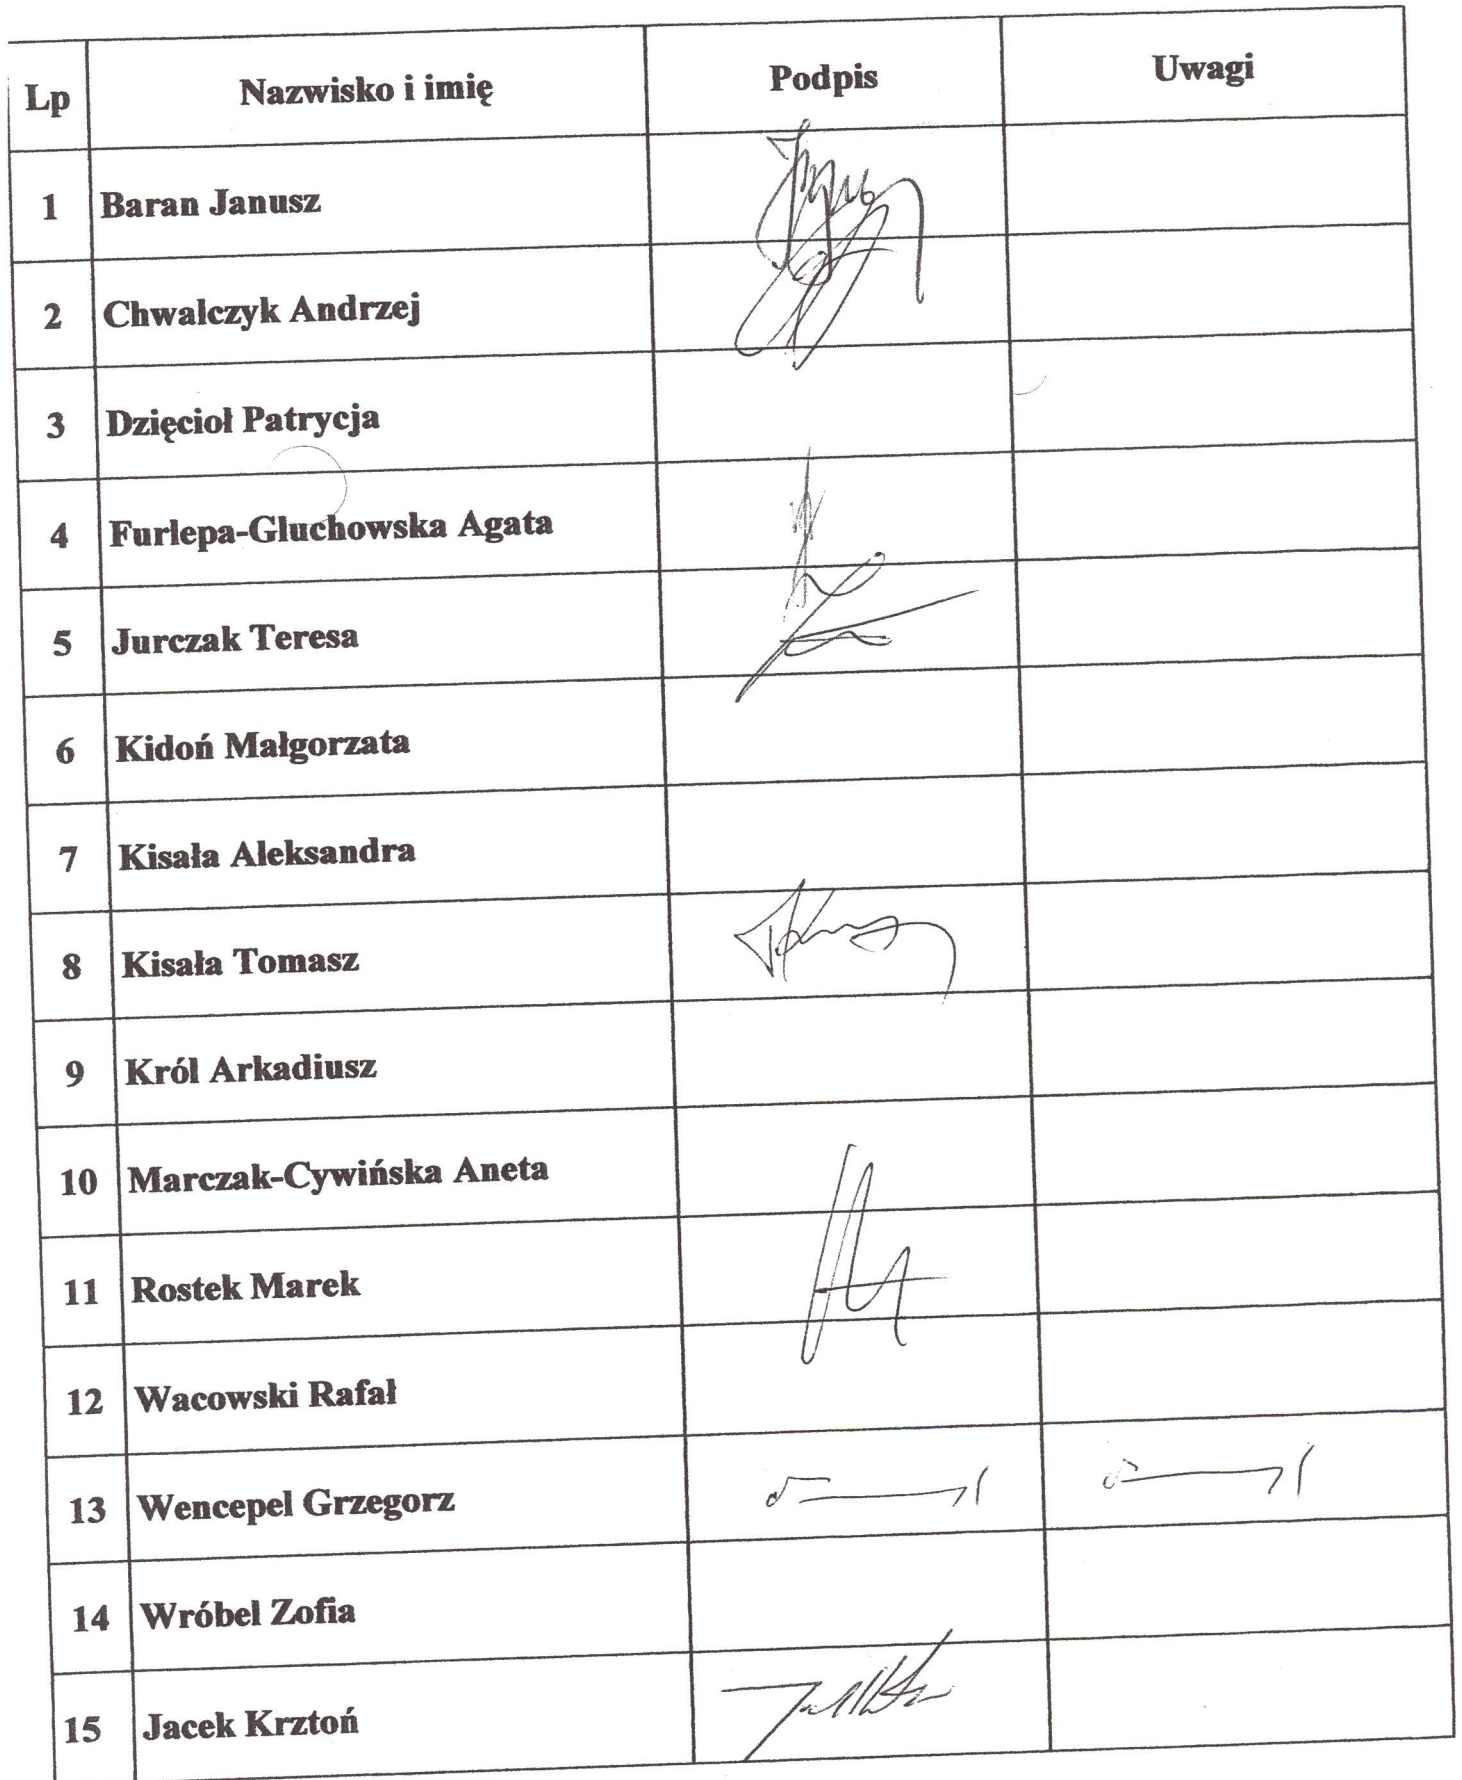 Lp Nazwisko i imię Podpis Uwagi
1 Baran Janusz
2 Chwalczyk Andrzej
3 Dzięcioł Patrycja
4 Furlepa-Głuchowska Agata
5 Jurczak Teresa
6 Kidoń Małgorzata
7 Kisała Aleksandra
8 Kisała Tomasz
9 Król Arkadiusz
10 Marczak-Cywińska Aneta
11 Rostek Marek
12 Wacowski Rafał
13 Wencepel Grzegorz
14 Wróbel Zofia
15 Jacek Krztoń